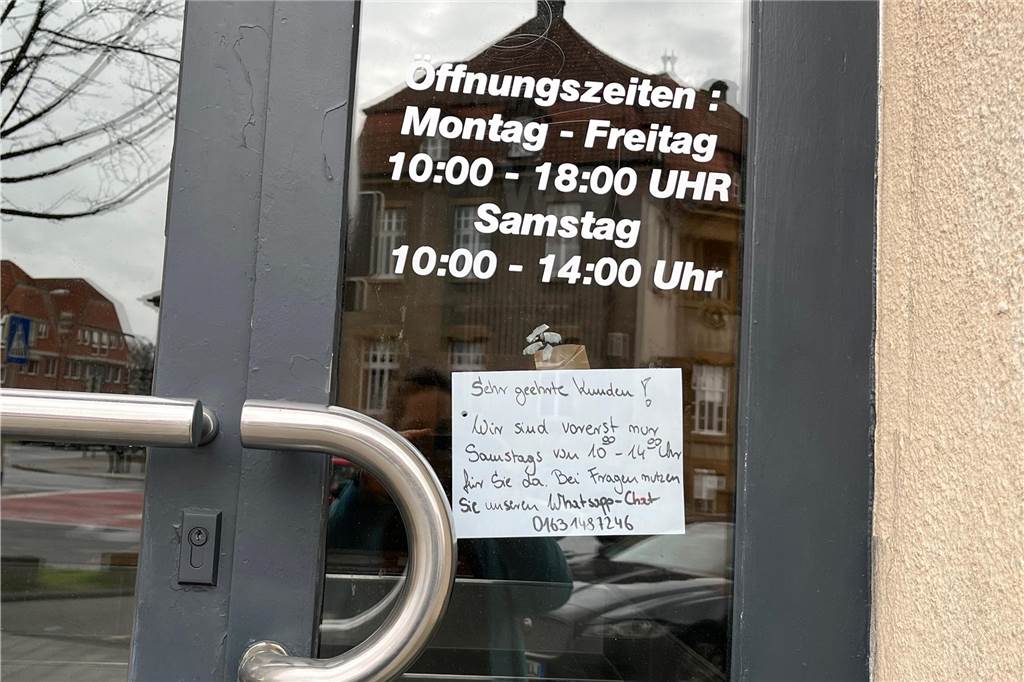 Öffnungszeiten :
Montag - Freitag
10:00 - 18:00 UHR
Samstag
10:00 - 14:00 Uhr
Sehr geehrte Kunden !
Wir sind vorerst nur
Samstags von 10⁰⁰ - 14⁰⁰ Uhr
für Sie da. Bei Fragen nutzen
Sie unseren Whatsapp-Chat
01631487246